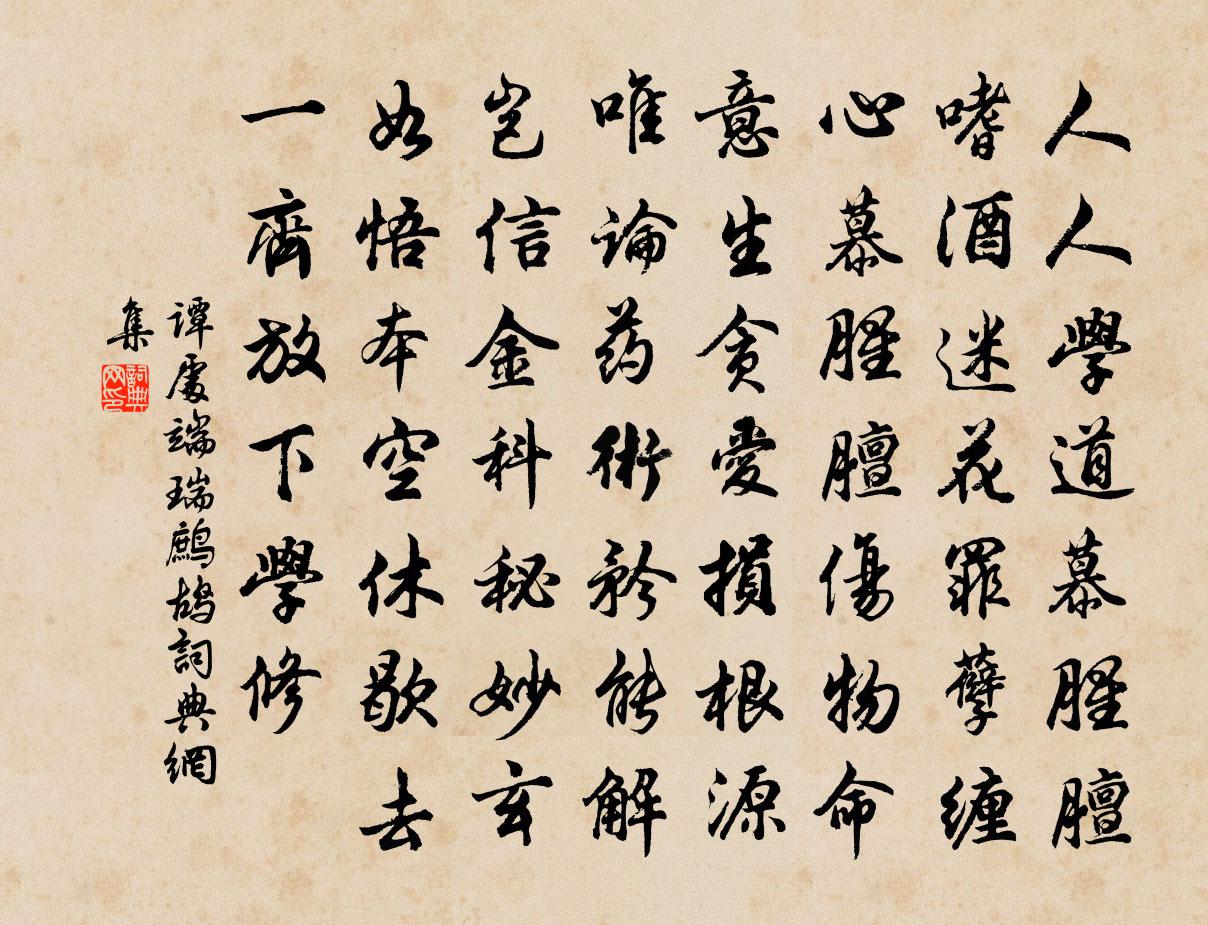 人人學道慕腥膻
嗜酒迷花罪孽缠
心慕腥膻傷物命
意生贪愛損根源
唯論药術矜能解
岂信金科秘妙玄
如悟本空休歇去
一齊放下學修
譚處端瑞鹧鸪詞典網
集
詞典网印